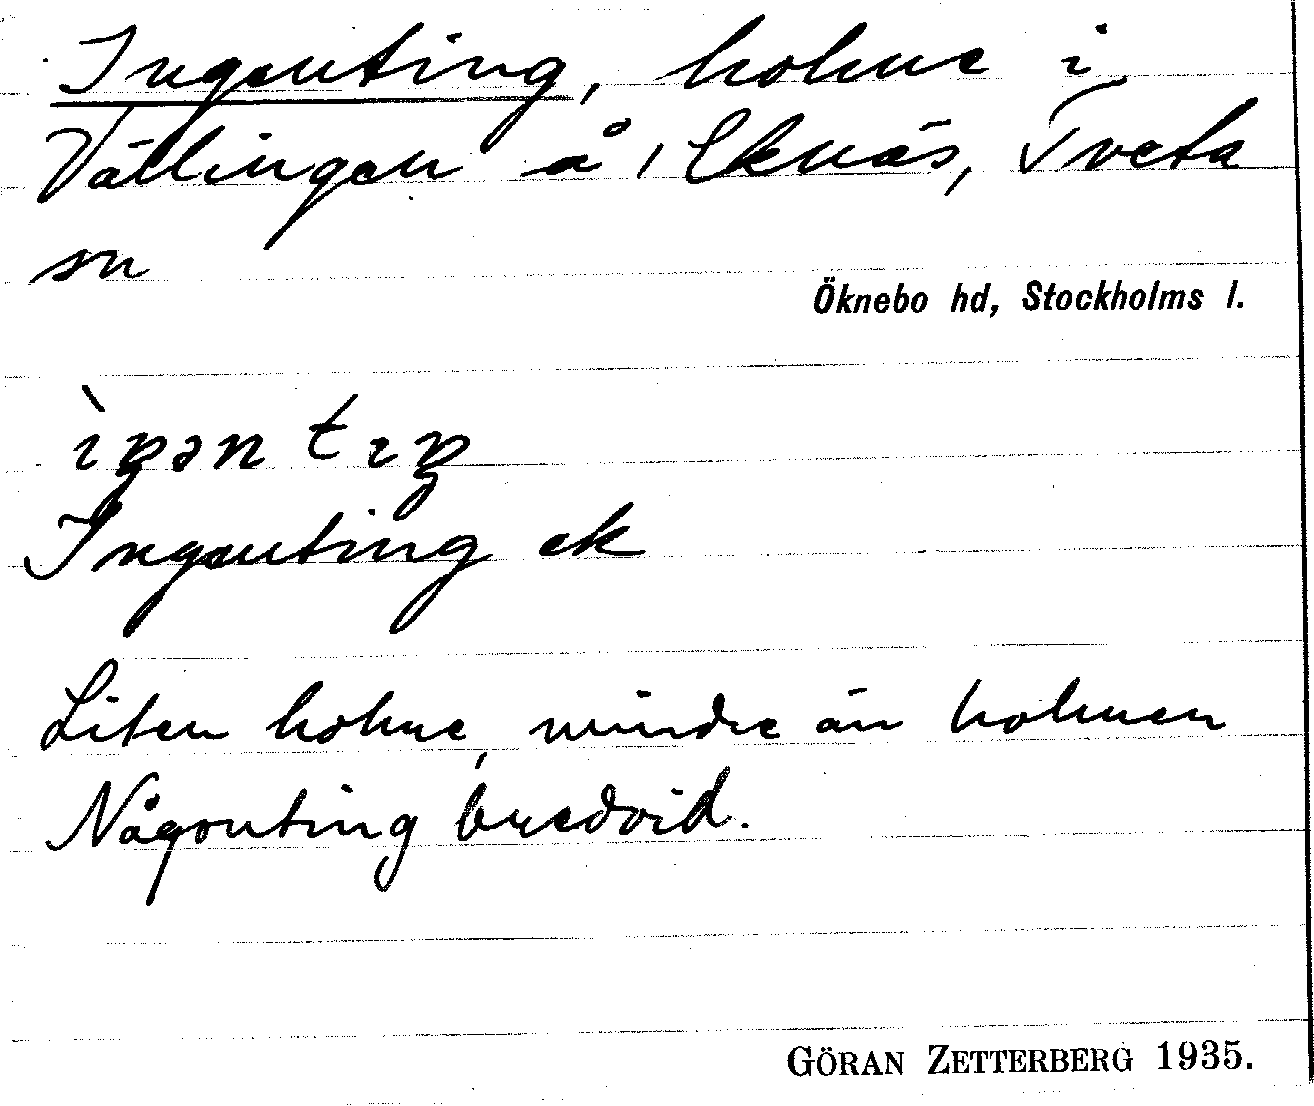 Ingenting, holme i
Vällingen å Eknäs, Tveta
sn
Öknebo hd, Stockholms l.
Ingenting ek
Liten holme, mindre än holmen
Någonting bredvid.
GÖRAN ZETTERBERG 1935.